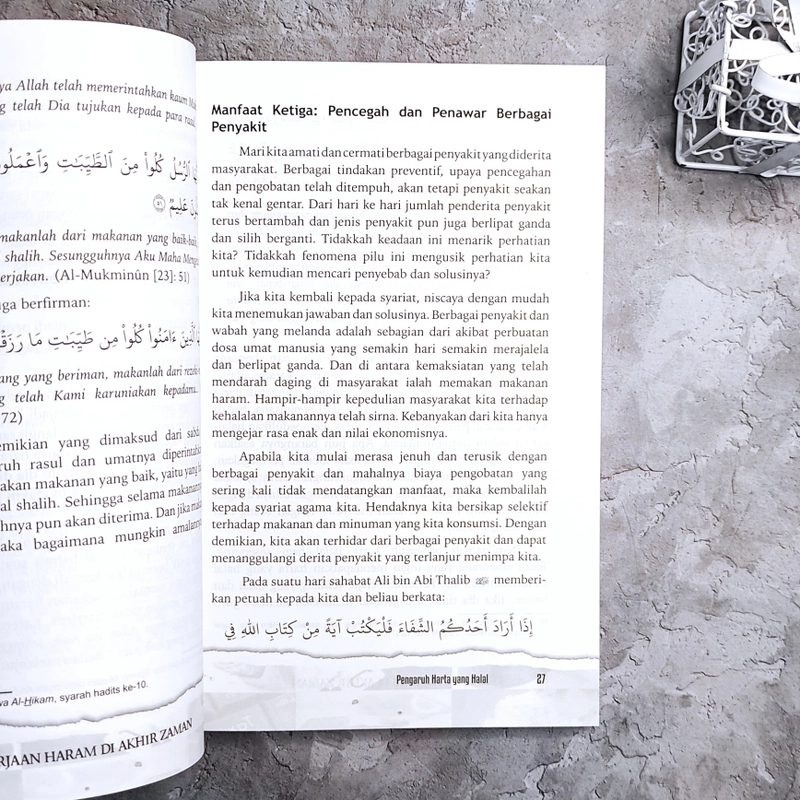 Allah telah memerintahkan kaum
telah Dia tujukan kepada para
الرُّسُلُ كُلُوا۟ مِنَ ٱلطَّيِّبَـٰتِ وَٱعْمَلُوا۟
عَلِيمٌ ۝٥١
makanlah dari makanan yang baik-baik,
shalih. Sesungguhnya Aku Maha
(Al-Mukminûn [23]: 51)
berfirman:
ٱلَّذِينَ ءَامَنُوا۟ كُلُوا۟ مِن طَيِّبَـٰتِ مَا
yang beriman, makanlah dari
telah Kami karuniakan kepadamu
72)
yang dimaksud dari
rasul dan umatnya
makanan yang baik, yaitu yang
shalih. Sehingga selama
pun akan diterima. Dan jika
bagaimana mungkin
Al-Hikam, syarah hadits ke-10.
HARAM DI AKHIR ZAMAN
Manfaat Ketiga: Pencegah dan Penawar Berbagai
Penyakit
Mari kita amati dan cermati berbagai penyakit yang diderita
masyarakat. Berbagai tindakan preventif, upaya pencegahan
dan pengobatan telah ditempuh, akan tetapi penyakit seakan
tak kenal gentar. Dari hari ke hari jumlah penderita penyakit
terus bertambah dan jenis penyakit pun juga berlipat ganda
dan silih berganti. Tidakkah keadaan ini menarik perhatian
kita? Tidakkah fenomena pilu ini mengusik perhatian kita
untuk kemudian mencari penyebab dan solusinya?
Jika kita kembali kepada syariat, niscaya dengan mudah
kita menemukan jawaban dan solusinya. Berbagai penyakit dan
wabah yang melanda adalah sebagian dari akibat perbuatan
dosa umat manusia yang semakin hari semakin merajalela
dan berlipat ganda. Dan di antara kemaksiatan yang telah
mendarah daging di masyarakat ialah memakan makanan
haram. Hampir-hampir kepedulian masyarakat kita terhadap
kehalalan makanannya telah sirna. Kebanyakan dari kita hanya
mengejar rasa enak dan nilai ekonomisnya.
Apabila kita mulai merasa jenuh dan terusik dengan
berbagai penyakit dan mahalnya biaya pengobatan yang
sering kali tidak mendatangkan manfaat, maka kembalilah
kepada syariat agama kita. Hendaknya kita bersikap selektif
terhadap makanan dan minuman yang kita konsumsi. Dengan
demikian, kita akan terhidar dari berbagai penyakit dan dapat
menanggulangi derita penyakit yang terlanjur menimpa kita.
Pada suatu hari sahabat Ali bin Abi Thalib memberi-
kan petuah kepada kita dan beliau berkata:
إِذَا أَرَادَ أَحَدُكُمُ الشِّفَاءَ فَلْيَكْتُبْ آيَةً مِنْ كِتَابِ اللهِ فِي
Pengaruh Harta yang Halal 27